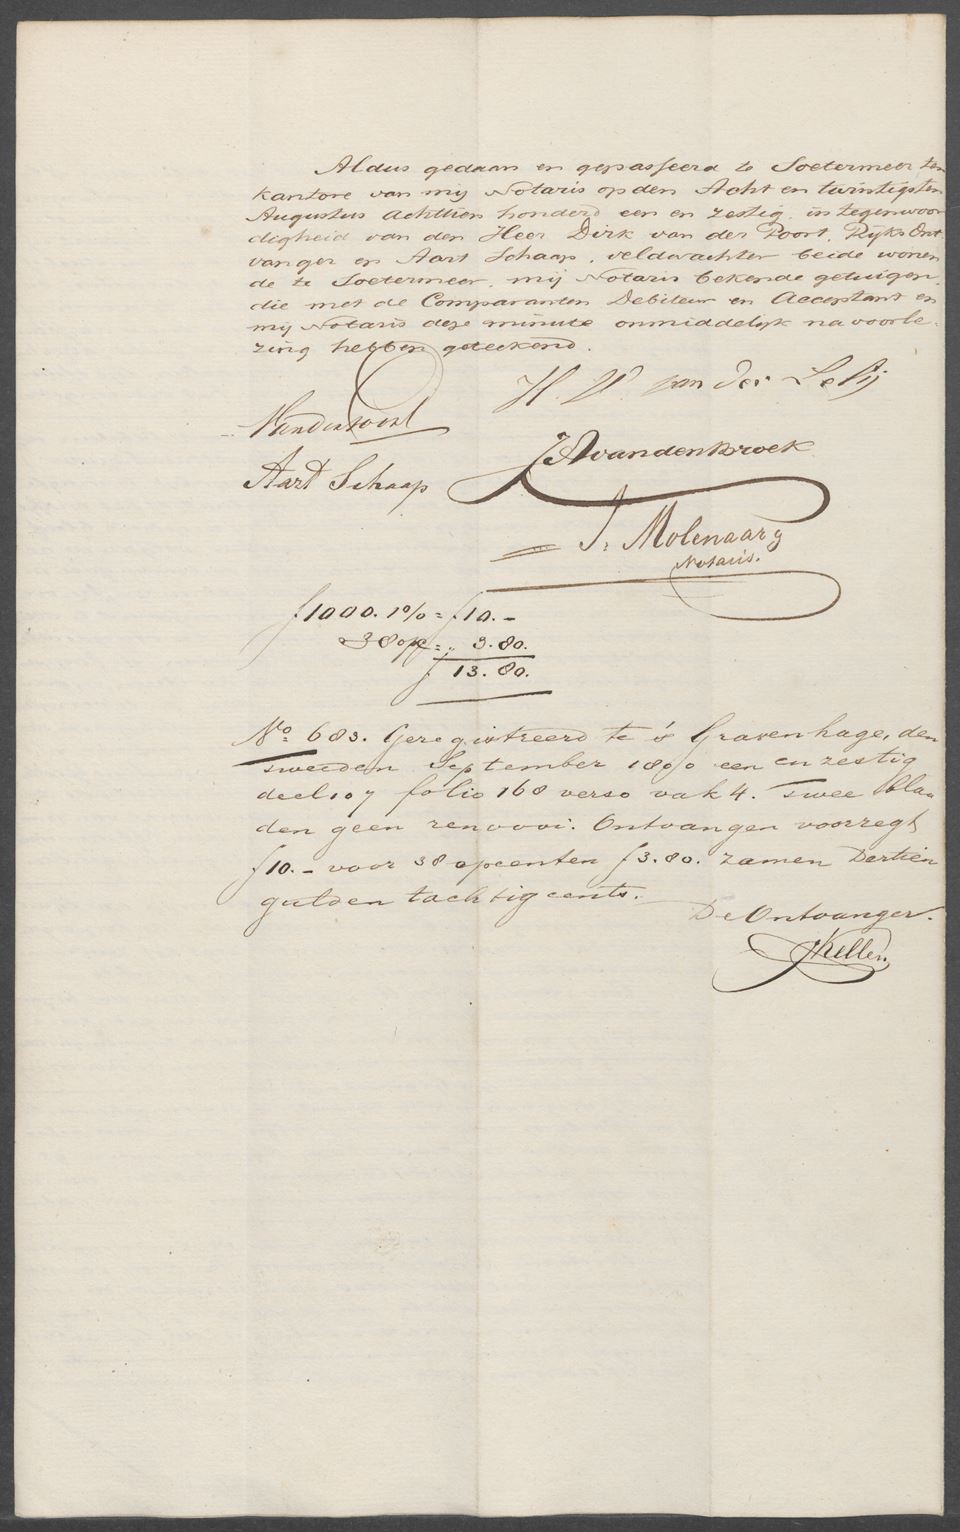 Aldus gedaan en gepasseerd te Soetermeer, ten
kantore van mij Notaris op den Acht en twintigsten
Augustus achttien honderd een en zestig, in tegenwoor
digheid van den Heer Dirk van der Poort, Rijks Ont
vanger en Aart Schaap, veldwachter beide wonen
de te Soetermeer, mij Notaris bekende getuigen,
die met de Comparanten Debiteur en Acceptant en
mij Notaris deze minute onmiddelijk na voorle,
zing hebben geteekend.
H. V. van der Lelij
Vanderpoort
JA van den Broek
Aart Schaap
J. Molenaar
Notaris.
f 1000. 1% = f 10.-
38 opc = „ 3.80.
f 13.80.
No. 683. Geregistreerd te 's Gravenhage, den
tweeden September 1800 een en zestig
deel 107 folio 168 verso vak 4. twee bla
den geen renvooi. Ontvangen voorregt
f 10.- voor 38 opcenten f 3.80. zamen Dertien
gulden tachtig cents.
De Ontvanger.